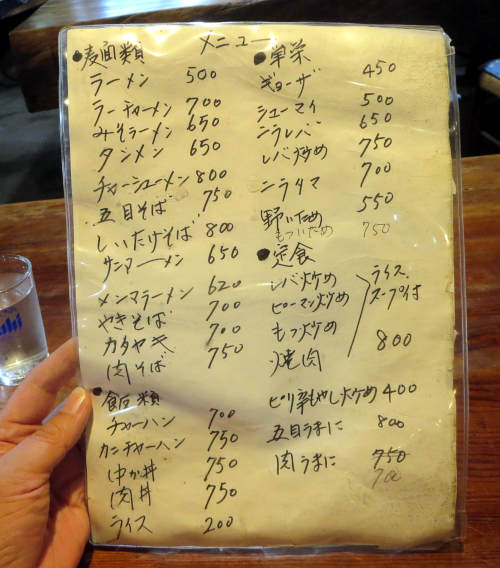 メニュー
●麦面類
ラーメン 500
ラーチャーメン 700
みそラーメン 650
タンメン 650
チャーシューメン 800
五目そば 750
しいたけそば 800
サンマーメン 650
メンマラーメン 620
やきそば 700
カタヤキ 700
肉そば 750
●飯類
チャーハン 700
カニチャーハン 750
中か丼 750
肉丼 750
ライス 200
●単菜
ギョーザ 450
シューマイ 500
ニラレバ 650
レバ炒め 750
ニラタマ 700
野いため 550
もついため 750
●定食
レバ炒め
ピーマン炒め
もつ炒め
焼肉
ライス
スープ付
800
ピリ辛もやし炒め 400
五目うまに 800
肉うまに 750
700